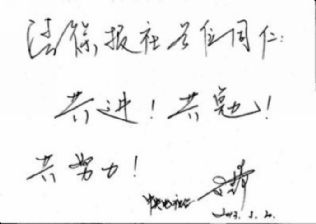 法保报社各位同仁:
共进!共勉!
共努力!
2013.3.20.